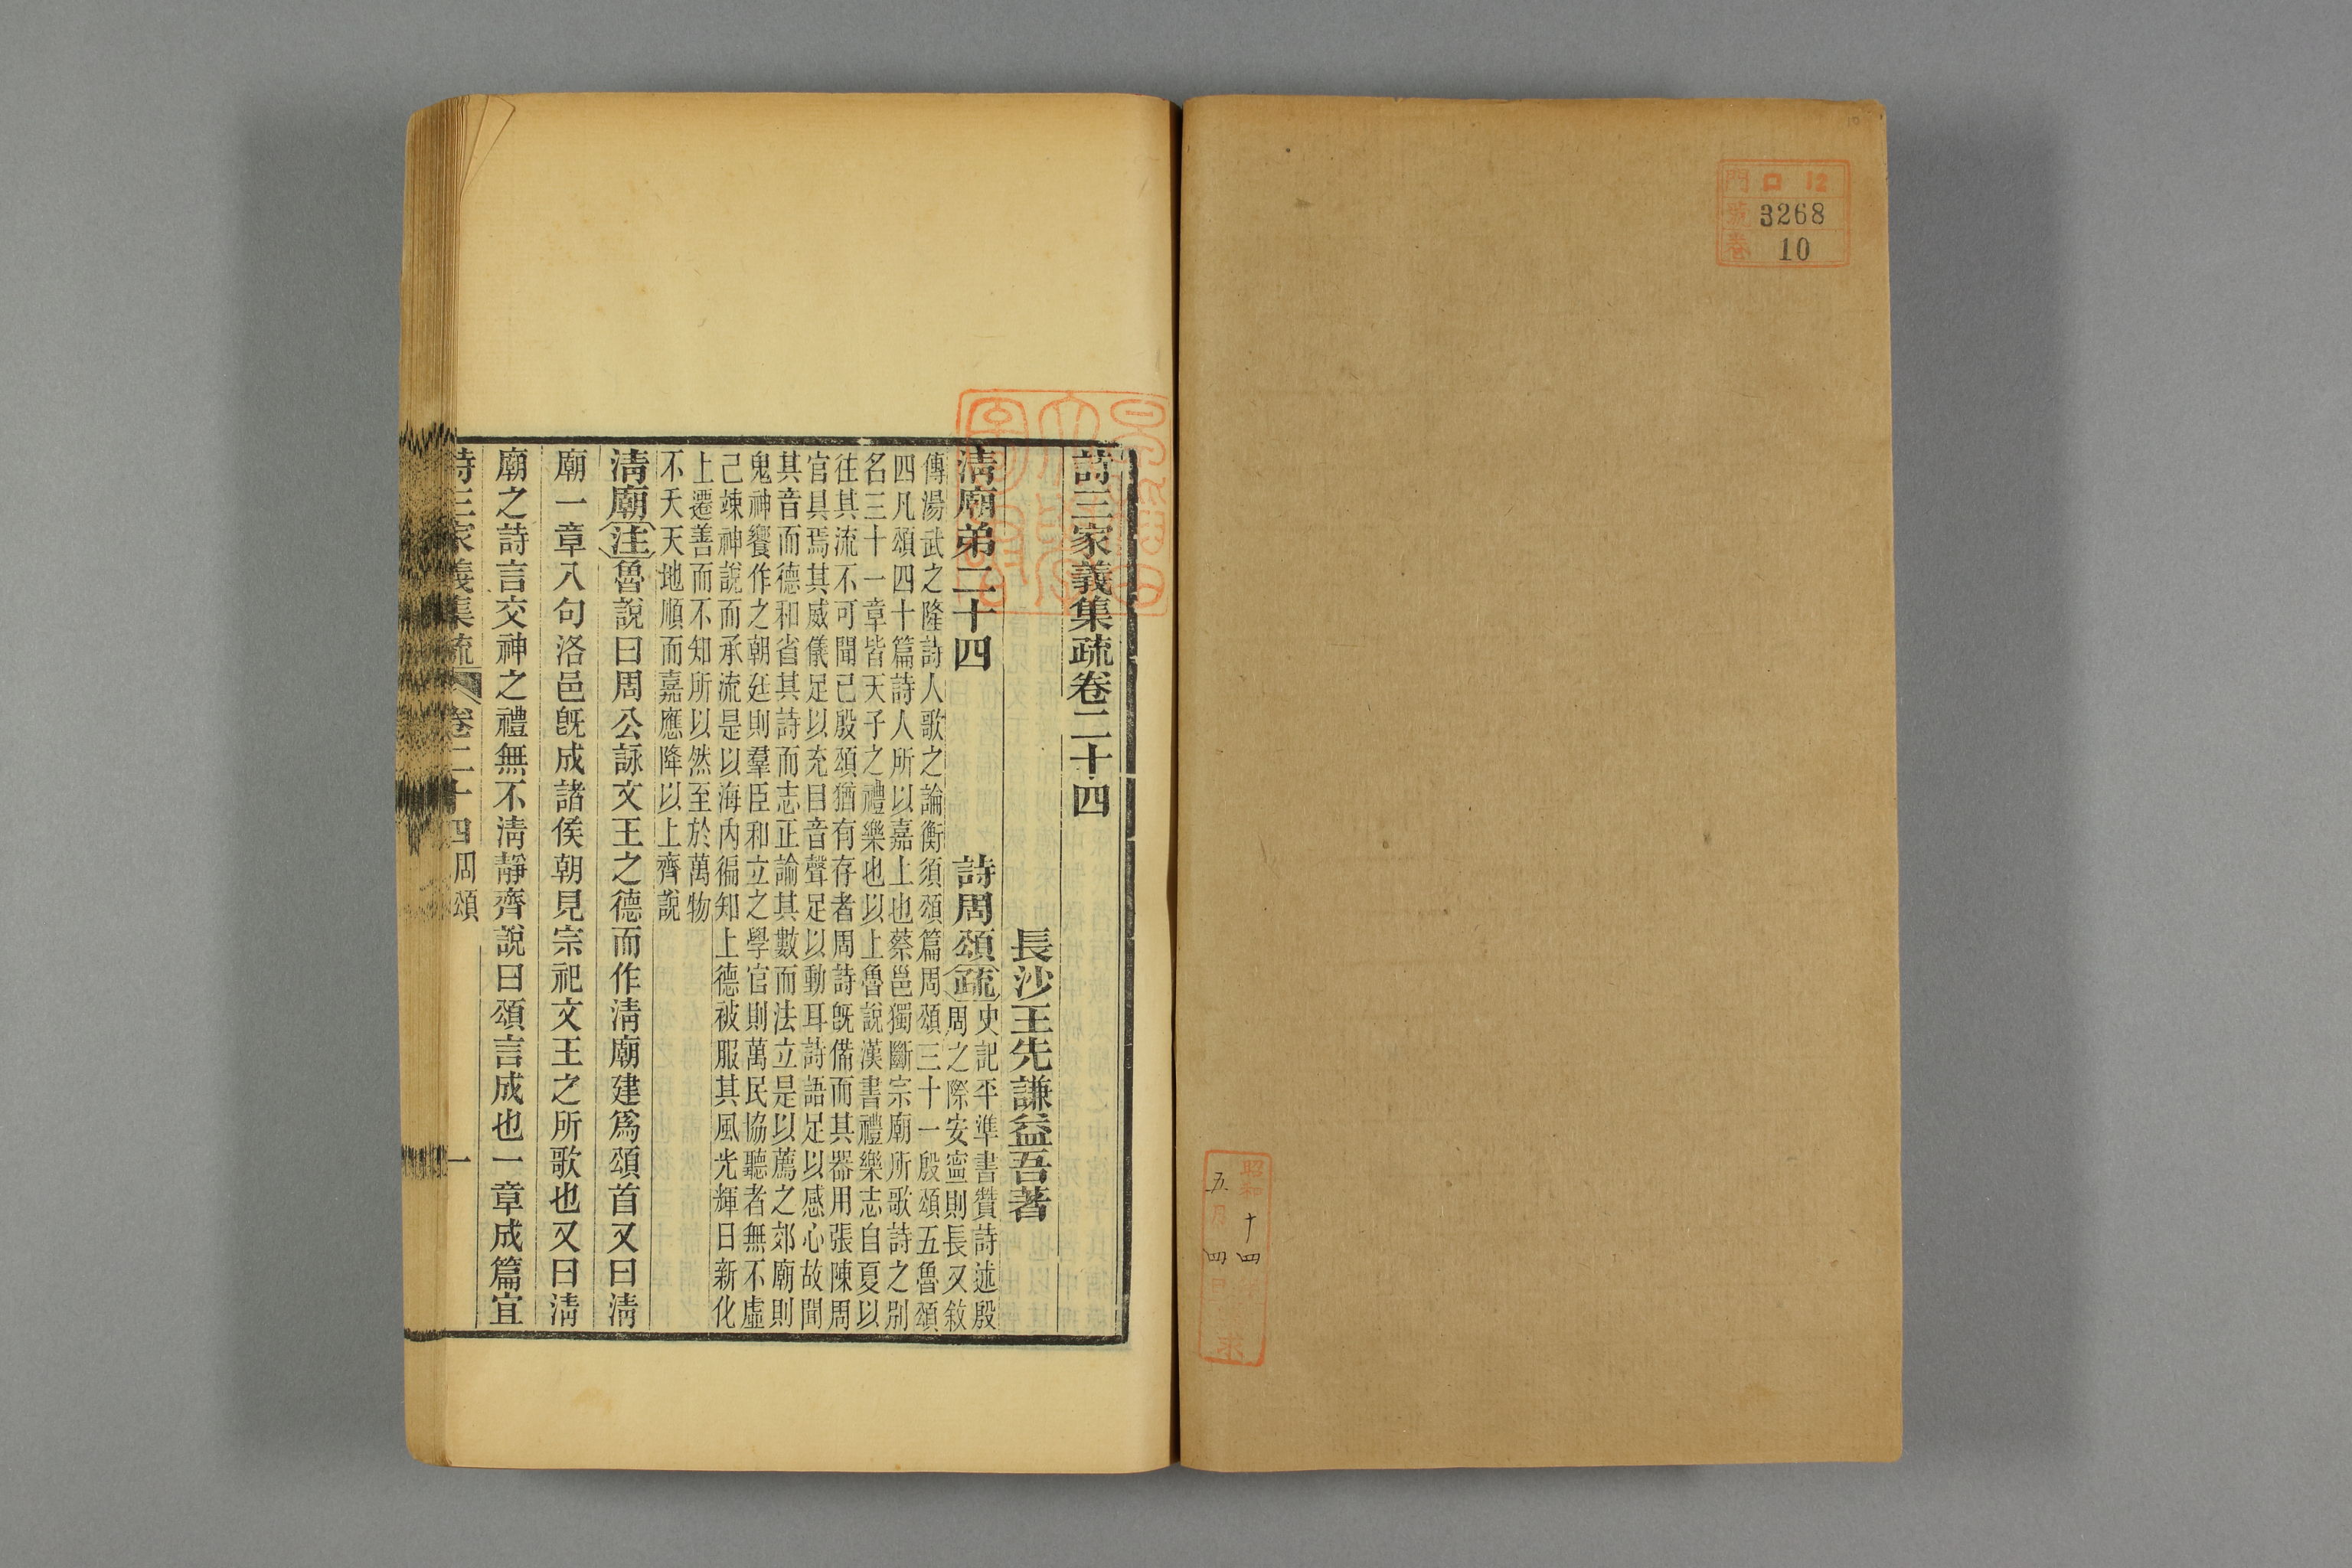 門 ロ 12
號 3268
卷 10
昭和十四
五月四日
求
詩三家義集疏卷二十四
長沙王先謙益吾著
淸廟弟二十四 詩周頌 疏 史記平準書贊詩述殷
周之際安寧則長又敘
傳湯武之隆詩人歌之論衡須頌篇周頌三十一殷頌五魯頌
四凡頌四十篇詩人所以嘉上也蔡邕獨斷宗廟所歌詩之別
名三十一章皆天子之禮樂也以上魯說漢書禮樂志自夏以
往其流不可聞已殷頌猶有存者周詩旣備而其器用張陳周
官具焉其威儀足以充目音聲足以動耳詩語足以感心故聞
其音而德和省其詩而志正論其數而法立是以薦之郊廟則
鬼神饗作之朝廷則羣臣和立之學官則萬民協聽者無不虛
己竦神說而承流是以海內徧知上德被服其風光輝日新化
上遷善而不知所以然至於萬物
不夭天地順而嘉應降以上齊說
淸廟 注 魯說曰周公詠文王之德而作淸廟建爲頌首又曰淸
廟一章八句洛邑旣成諸侯朝見宗祀文王之所歌也又曰淸
廟之詩言交神之禮無不淸靜齊說曰頌言成也一章成篇宜
詩三家義集疏 卷二十四 周頌 一